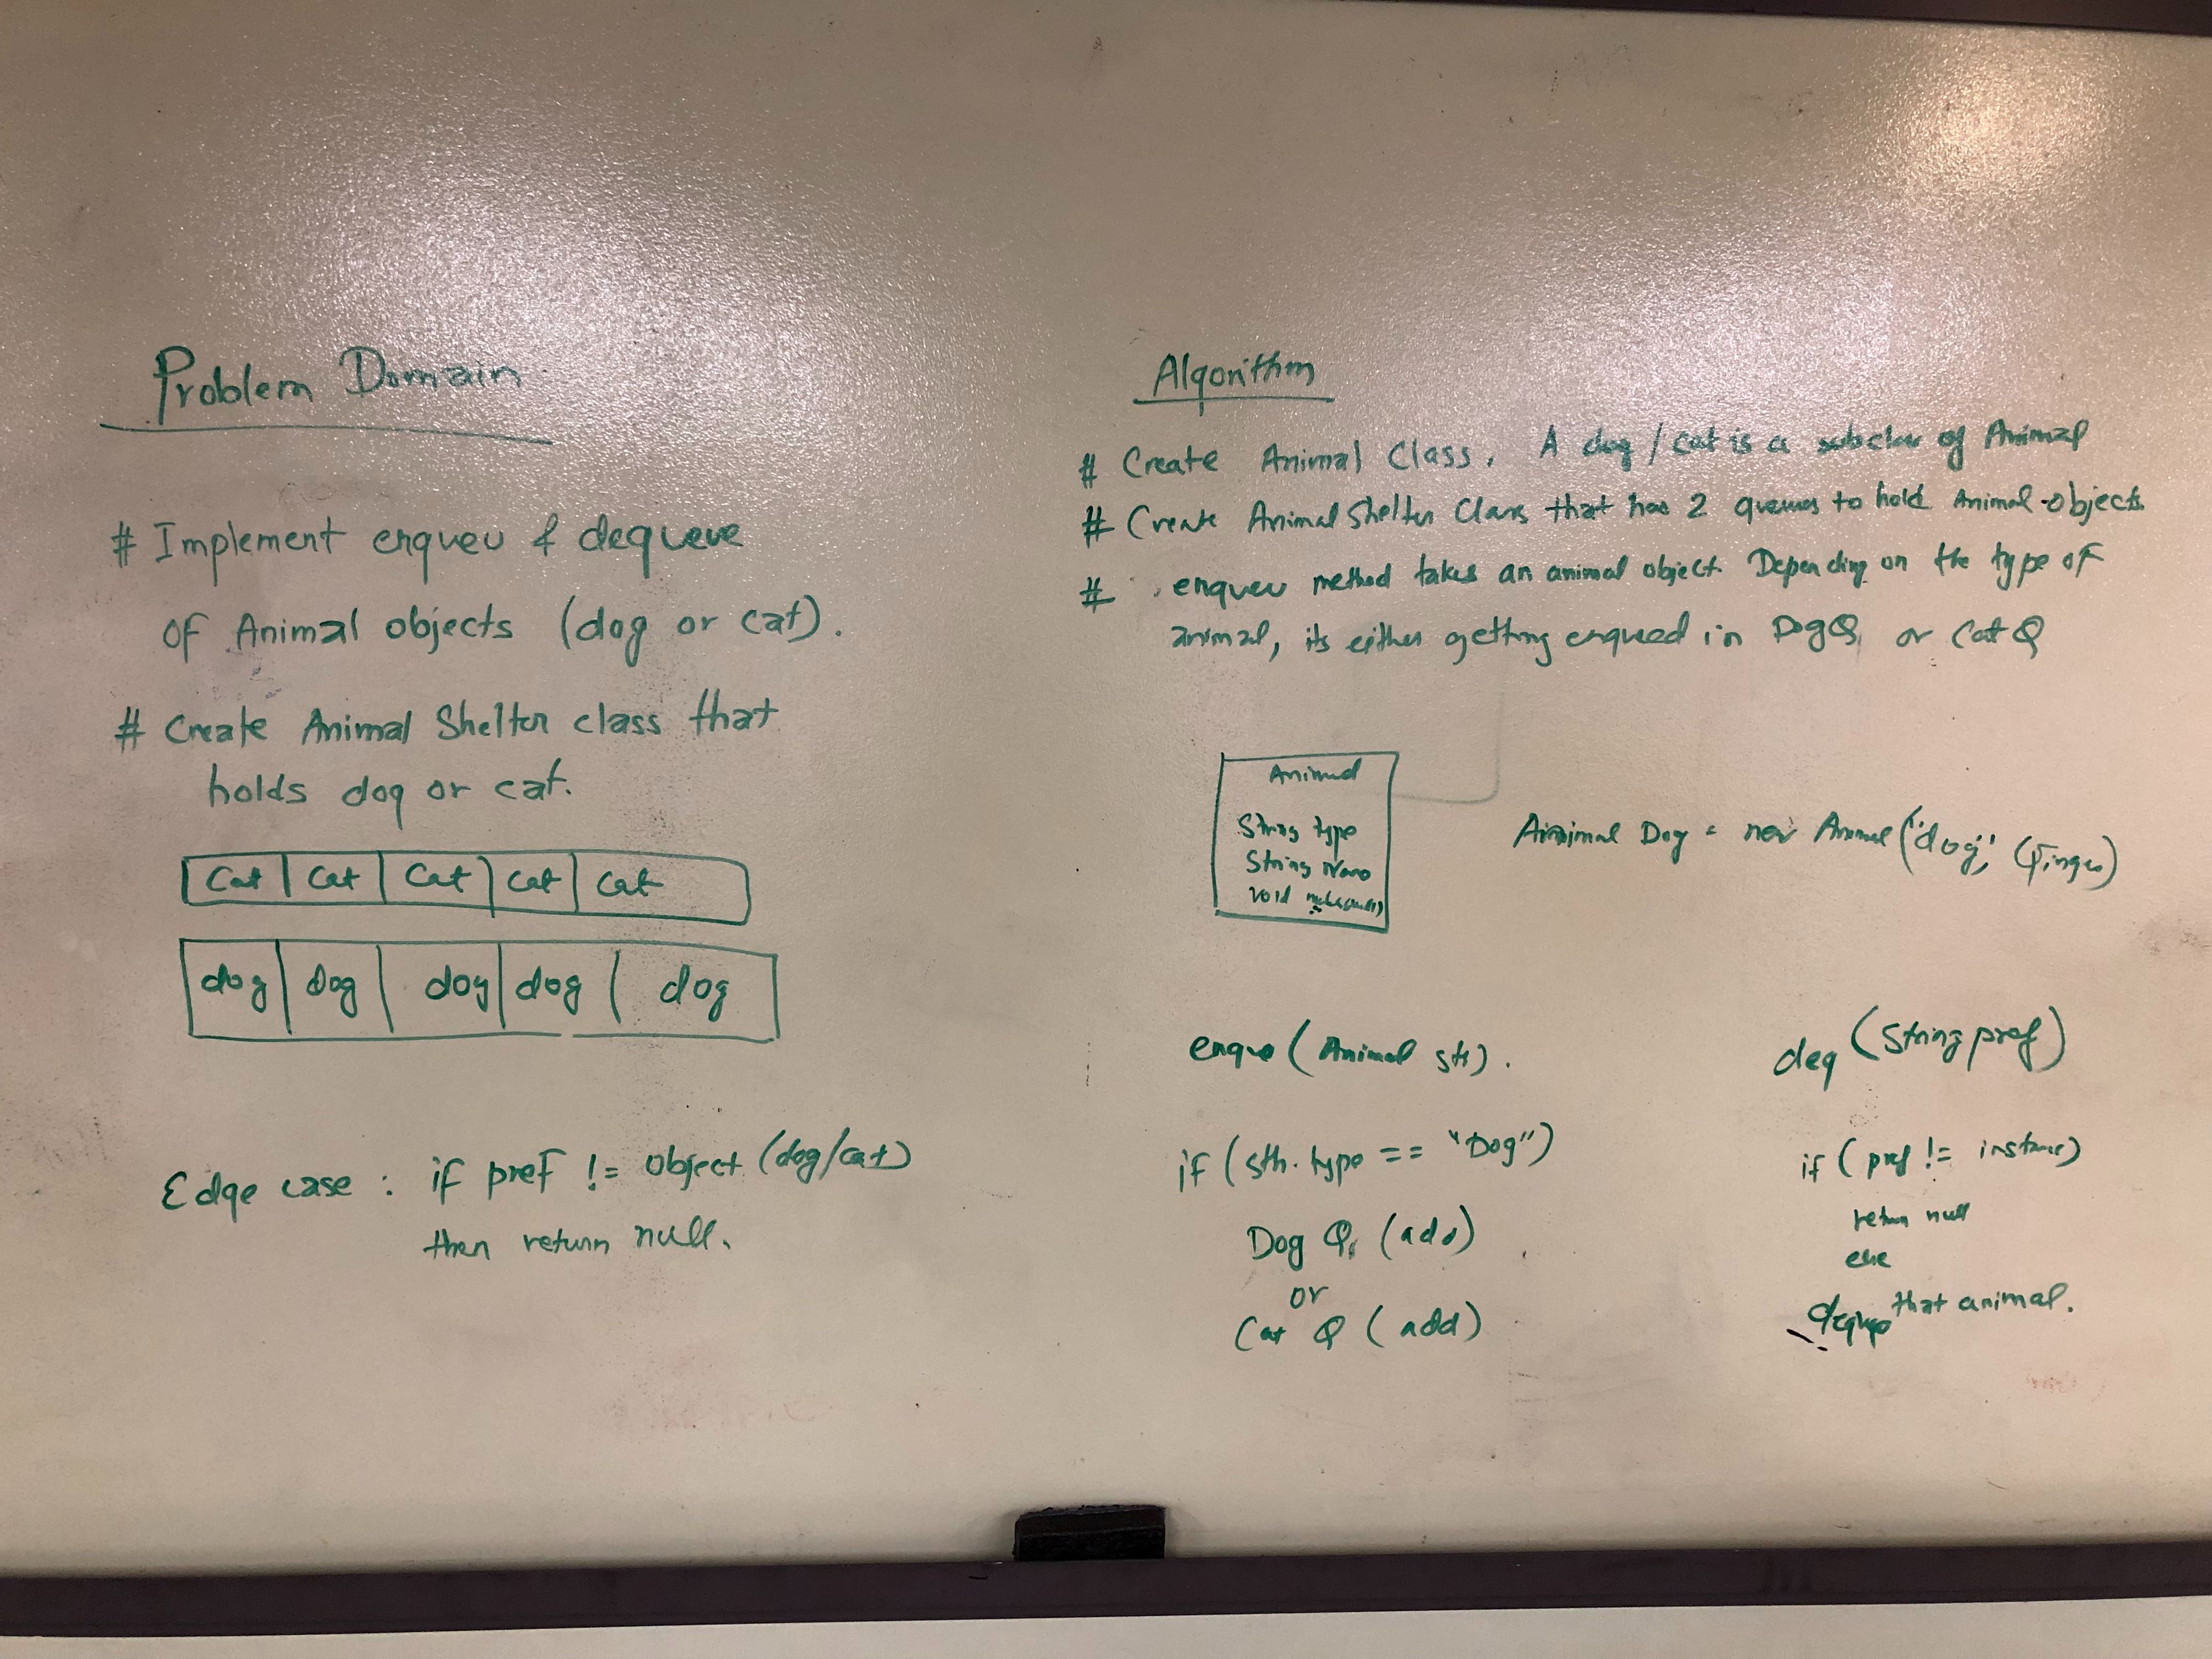 Problem Domain
# Implement enqueu & dequeue
of Animal objects (dog or cat).
# Create Animal Shelter class that
holds dog or cat.
Cat Cat Cat Cat Cat
dog dog dog dog dog
Edge case : if pref != object (dog/cat)
then return null.
Algorithm
# Create Animal Class. A dog/cat is a subclass of Animal
# Create Animal Shelter Class that has 2 queues to hold Animal objects.
# enqueu method takes an animal object. Depending on the type of
animal, its either getting enqueed in DogQ or Cat Q
Animal
String type
String Name
void
Animal Dog = new Animal ("dog",
enque (Animal sth).
if (sth. type == "Dog")
Dog Q (add)
or
Cat Q (add)
deq (String pref)
if (pref != instance)
return null
else
deque that animal.